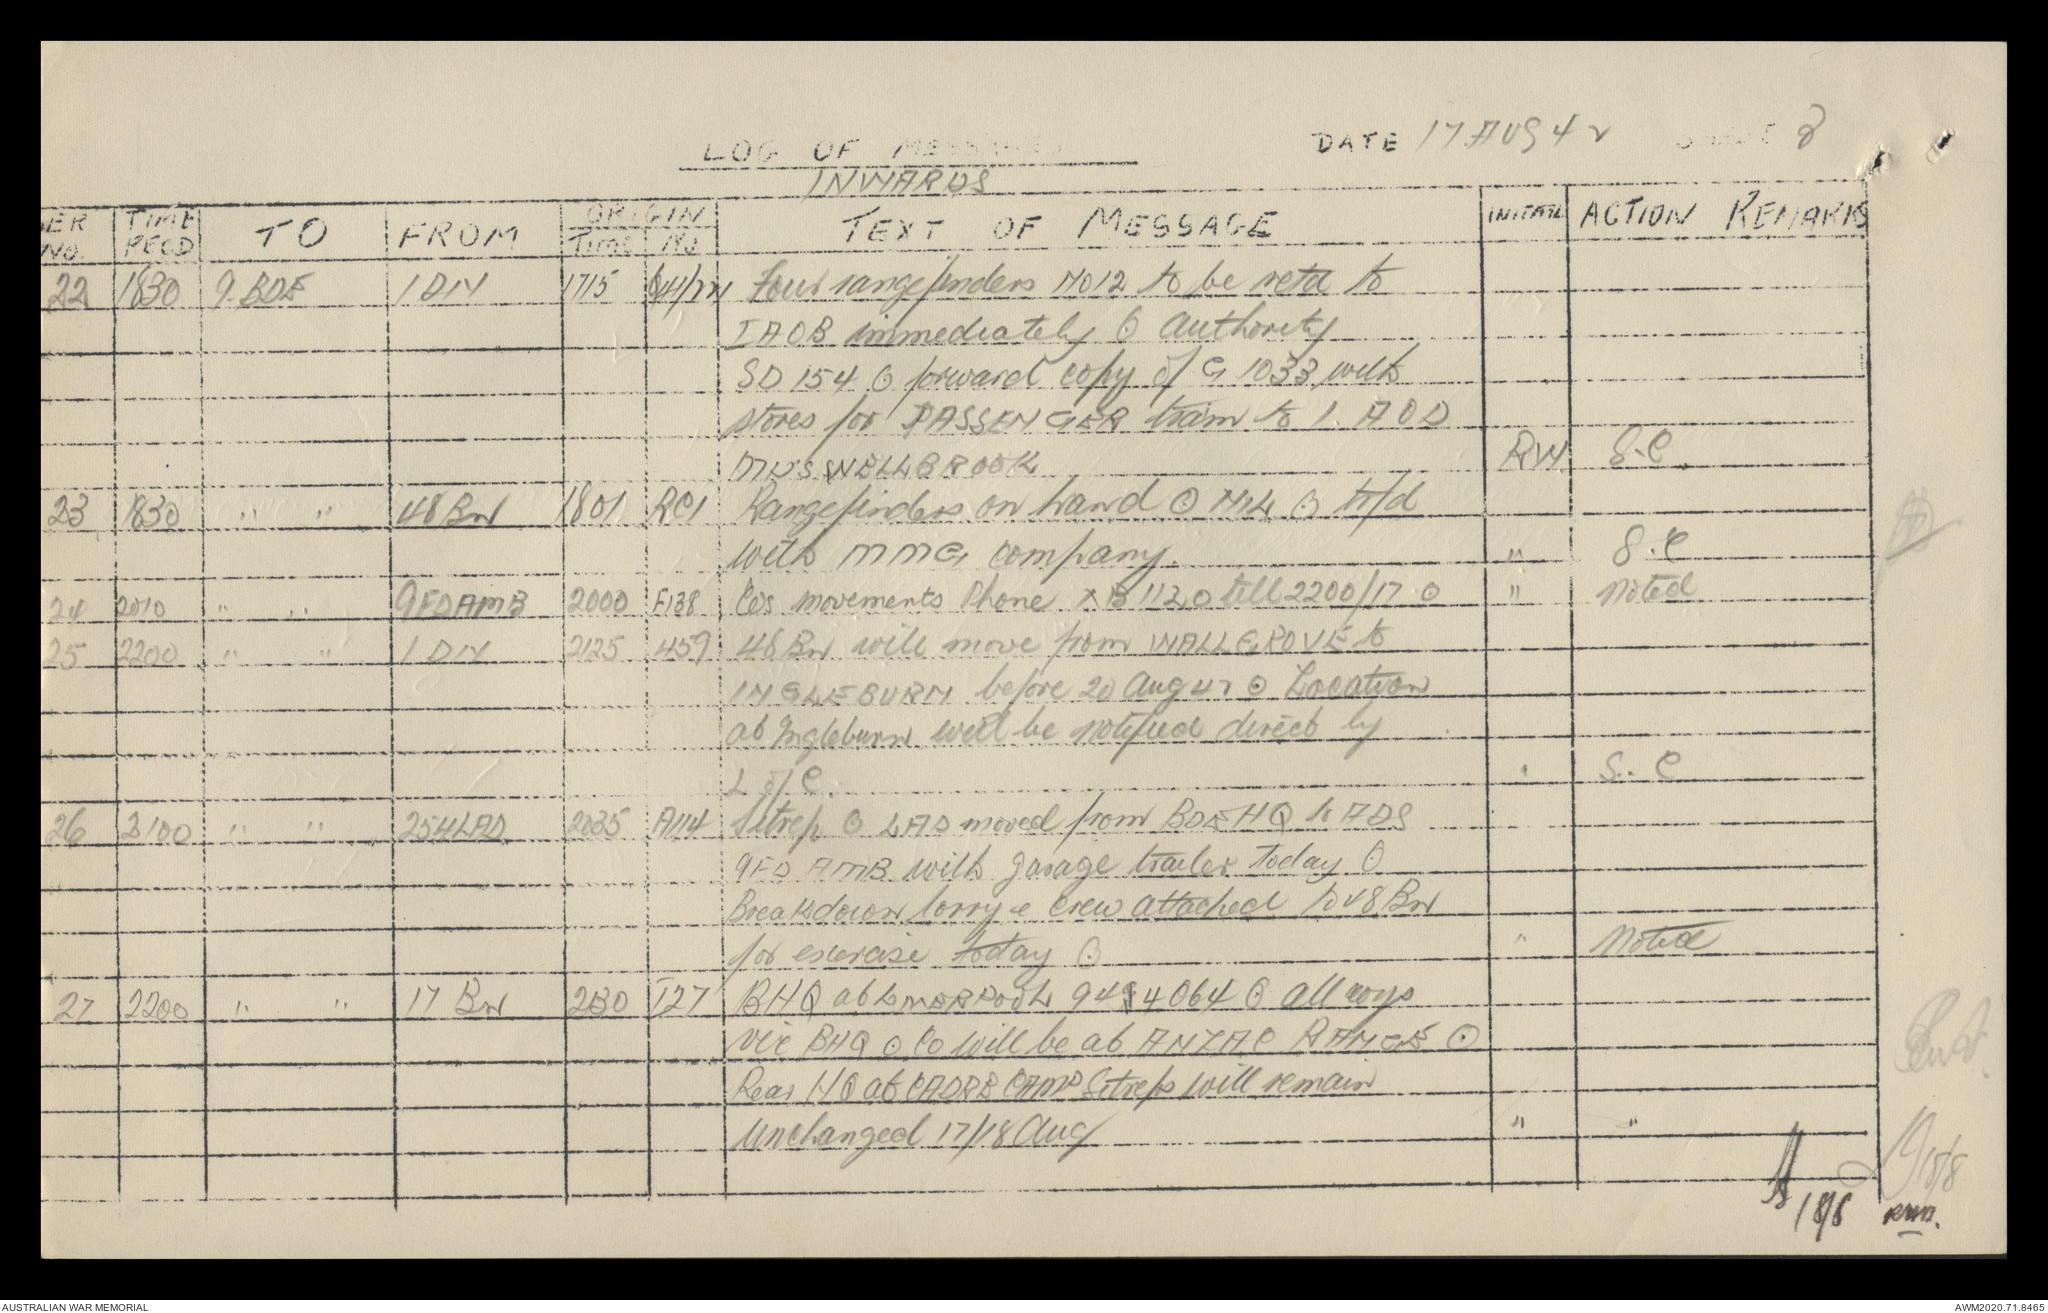 LOG OF MESSAGES DATE 17 AUG 42 SHEET 8
INWARDS
SER NO. TIME RECD TO FROM ORIGIN TIME NO TEXT OF MESSAGE INITIAL ACTION REMARKS
22 1830 9 BDE 1 DIV 1715 Four rangefinders NO 12 to be retd to
IAOB immediately ⊙ Authority
SD 154 ⊙ forward copy of G 1033 with
stores for PASSENGER train to 1. AOD
RW S.C.
23 1830 " " 48 BN 1801 RC1 Rangefinders on hand ⊙ NIL ⊙ tr/d
with MMG company. " S.C
24 2010 " " 9 FD AMB 2000 F138 COs movements Phone XB 112 ⊙ till 2200/17 ⊙ " Noted
25 2200 " " 1 DIV 2125 459 48 BN will move from WALLGROVE to
INGLEBURN before 20 Aug 42 ⊙ Location
at Ingleburn will be notified direct by
L of C. " S. C
26 2100 " " 254 LAD 2035 A114 Sitrep ⊙ LAD moved from BDE HQ to ADS
9 FD AMB with garage trailer today ⊙
Breakdown lorry & crew attached to 48 BN
for exercise today ⊙ " Noted
27 2200 " " 17 BN 2130 I27 BHQ at LIVERPOOL 944064 ⊙ All coys
vic BHQ ⊙ CO will be at ANZAC RANGE ⊙
Rear HQ at CADRE CAMP Sitreps will remain
Unchanged 17/18 Aug " "
18/8
18/8
AUSTRALIAN WAR MEMORIAL AWM2020.71.8465